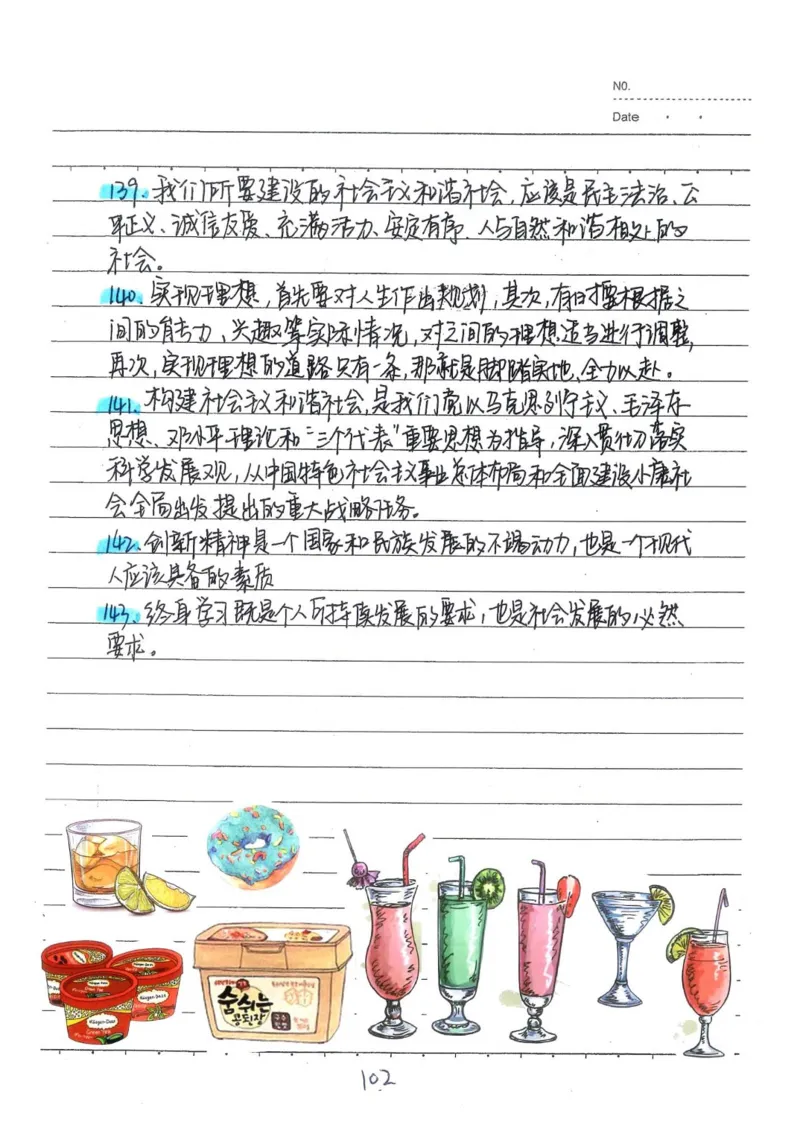 NO.
Date
139. 我们所要建设的社会主义和谐社会,应该是民主法治、公
平正义、诚信友爱、充满活力、安定有序、人与自然和谐相处的
社会。
140. 实现理想,首先要对人生作出规划,其次,有时要根据之
间的能力、兴趣等实际情况,对之间的理想适当进行调整,
再次,实现理想的道路只有一条,那就是脚踏实地、全力以赴。
141. 构建社会主义和谐社会,是我们党以马克思列宁主义、毛泽东
思想、邓小平理论和“三个代表”重要思想为指导,深入贯彻落实
科学发展观,从中国特色社会主义事业总体布局和全面建设小康社
会全局出发提出的重大战略任务。
142. 创新精神是一个国家和民族发展的不竭动力,也是一个现代
人应该具备的素质
143. 终身学习既是个人可持续发展的要求,也是社会发展的必然
要求。
Häagen-Dazs
Green Tea
Häagen-Dazs
숨쉬는
콩된장
102